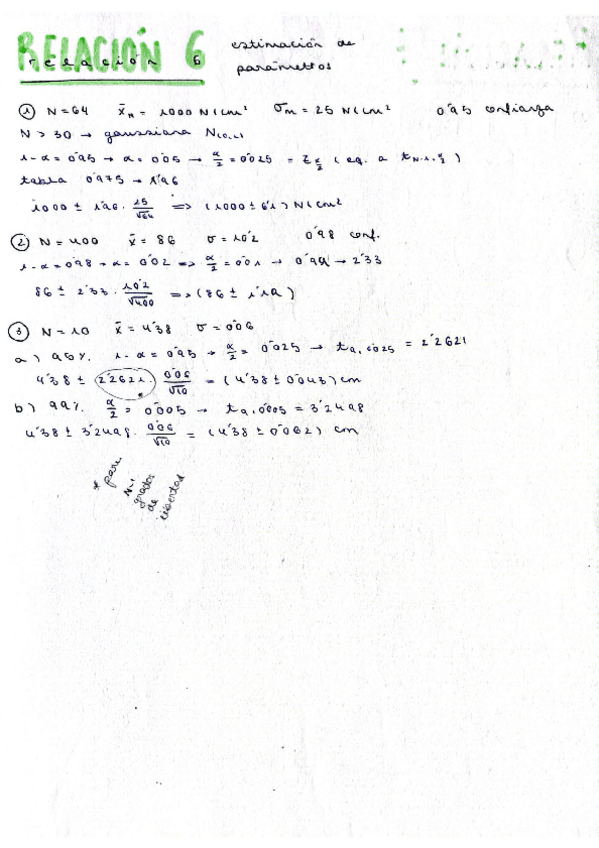 RELACIÓN 6
relación 6
estimación de
parámetros
① N=64 x̄ₙ = 1000 N/cm² σₘ = 25 N/cm² 0'95 confianza
N > 30 → gaussiana N(0,1)
1-α = 0'95 → α = 0'05 → α/2 = 0'025 = Z α/2 (eq. a t N-1, α/2)
tabla 0'975 → 1'96
1000 ± 1'96 · 25/√64 ⇒ (1000 ± 6'1) N/cm²
② N = 400 x̄ = 86 σ = 10'2 0'98 conf.
1-α = 0'98 → α = 0'02 ⇒ α/2 = 0'01 → 0'99 → 2'33
86 ± 2'33 · 10'2/√400 ⇒ (86 ± 1'19)
③ N = 10 x̄ = 4'38 σ = 0'06
a) 95%. 1-α = 0'95 → α/2 = 0'025 → t 9, 0'025 = 2'2621
4'38 ± 2'2621 · 0'06/√10 = (4'38 ± 0'043) cm
*
b) 99%. α/2 = 0'005 → t 9, 0'005 = 3'2498
4'38 ± 3'2498 · 0'06/√10 = (4'38 ± 0'062) cm
* para
N-1
grados
de
libertad